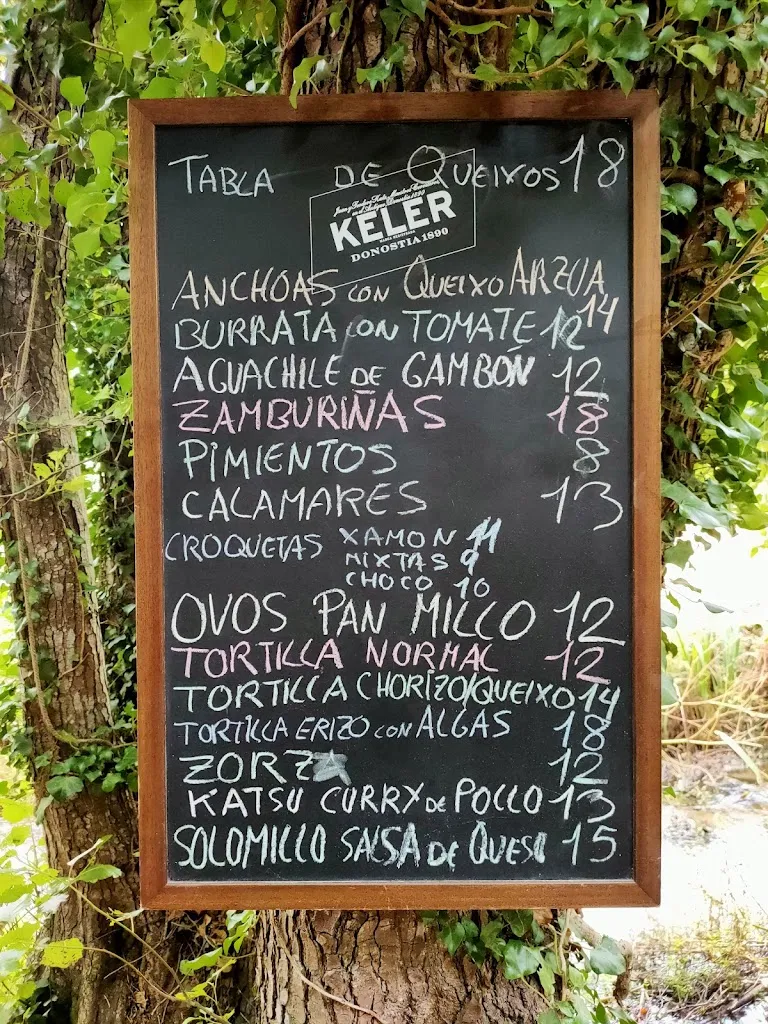 TABLA DE QUEIXOS 18
KELER
DONOSTIA 1890
ANCHOAS CON QUEIXO ARZUA 14
BURRATA CON TOMATE 12
AGUACHILE DE GAMBÓN 12
ZAMBURIÑAS 18
PIMIENTOS 8
CALAMARES 13
CROQUETAS XAMON 11
MIXTAS 9
CHOCO 10
OVOS PAN MILLO 12
TORTILLA NORMAL 12
TORTILLA CHORIZO/QUEIXO 14
TORTILLA ERIZO CON ALGAS 18
ZORZA 12
KATSU CURRY DE POLLO 13
SOLOMILLO SALSA DE QUESO 15